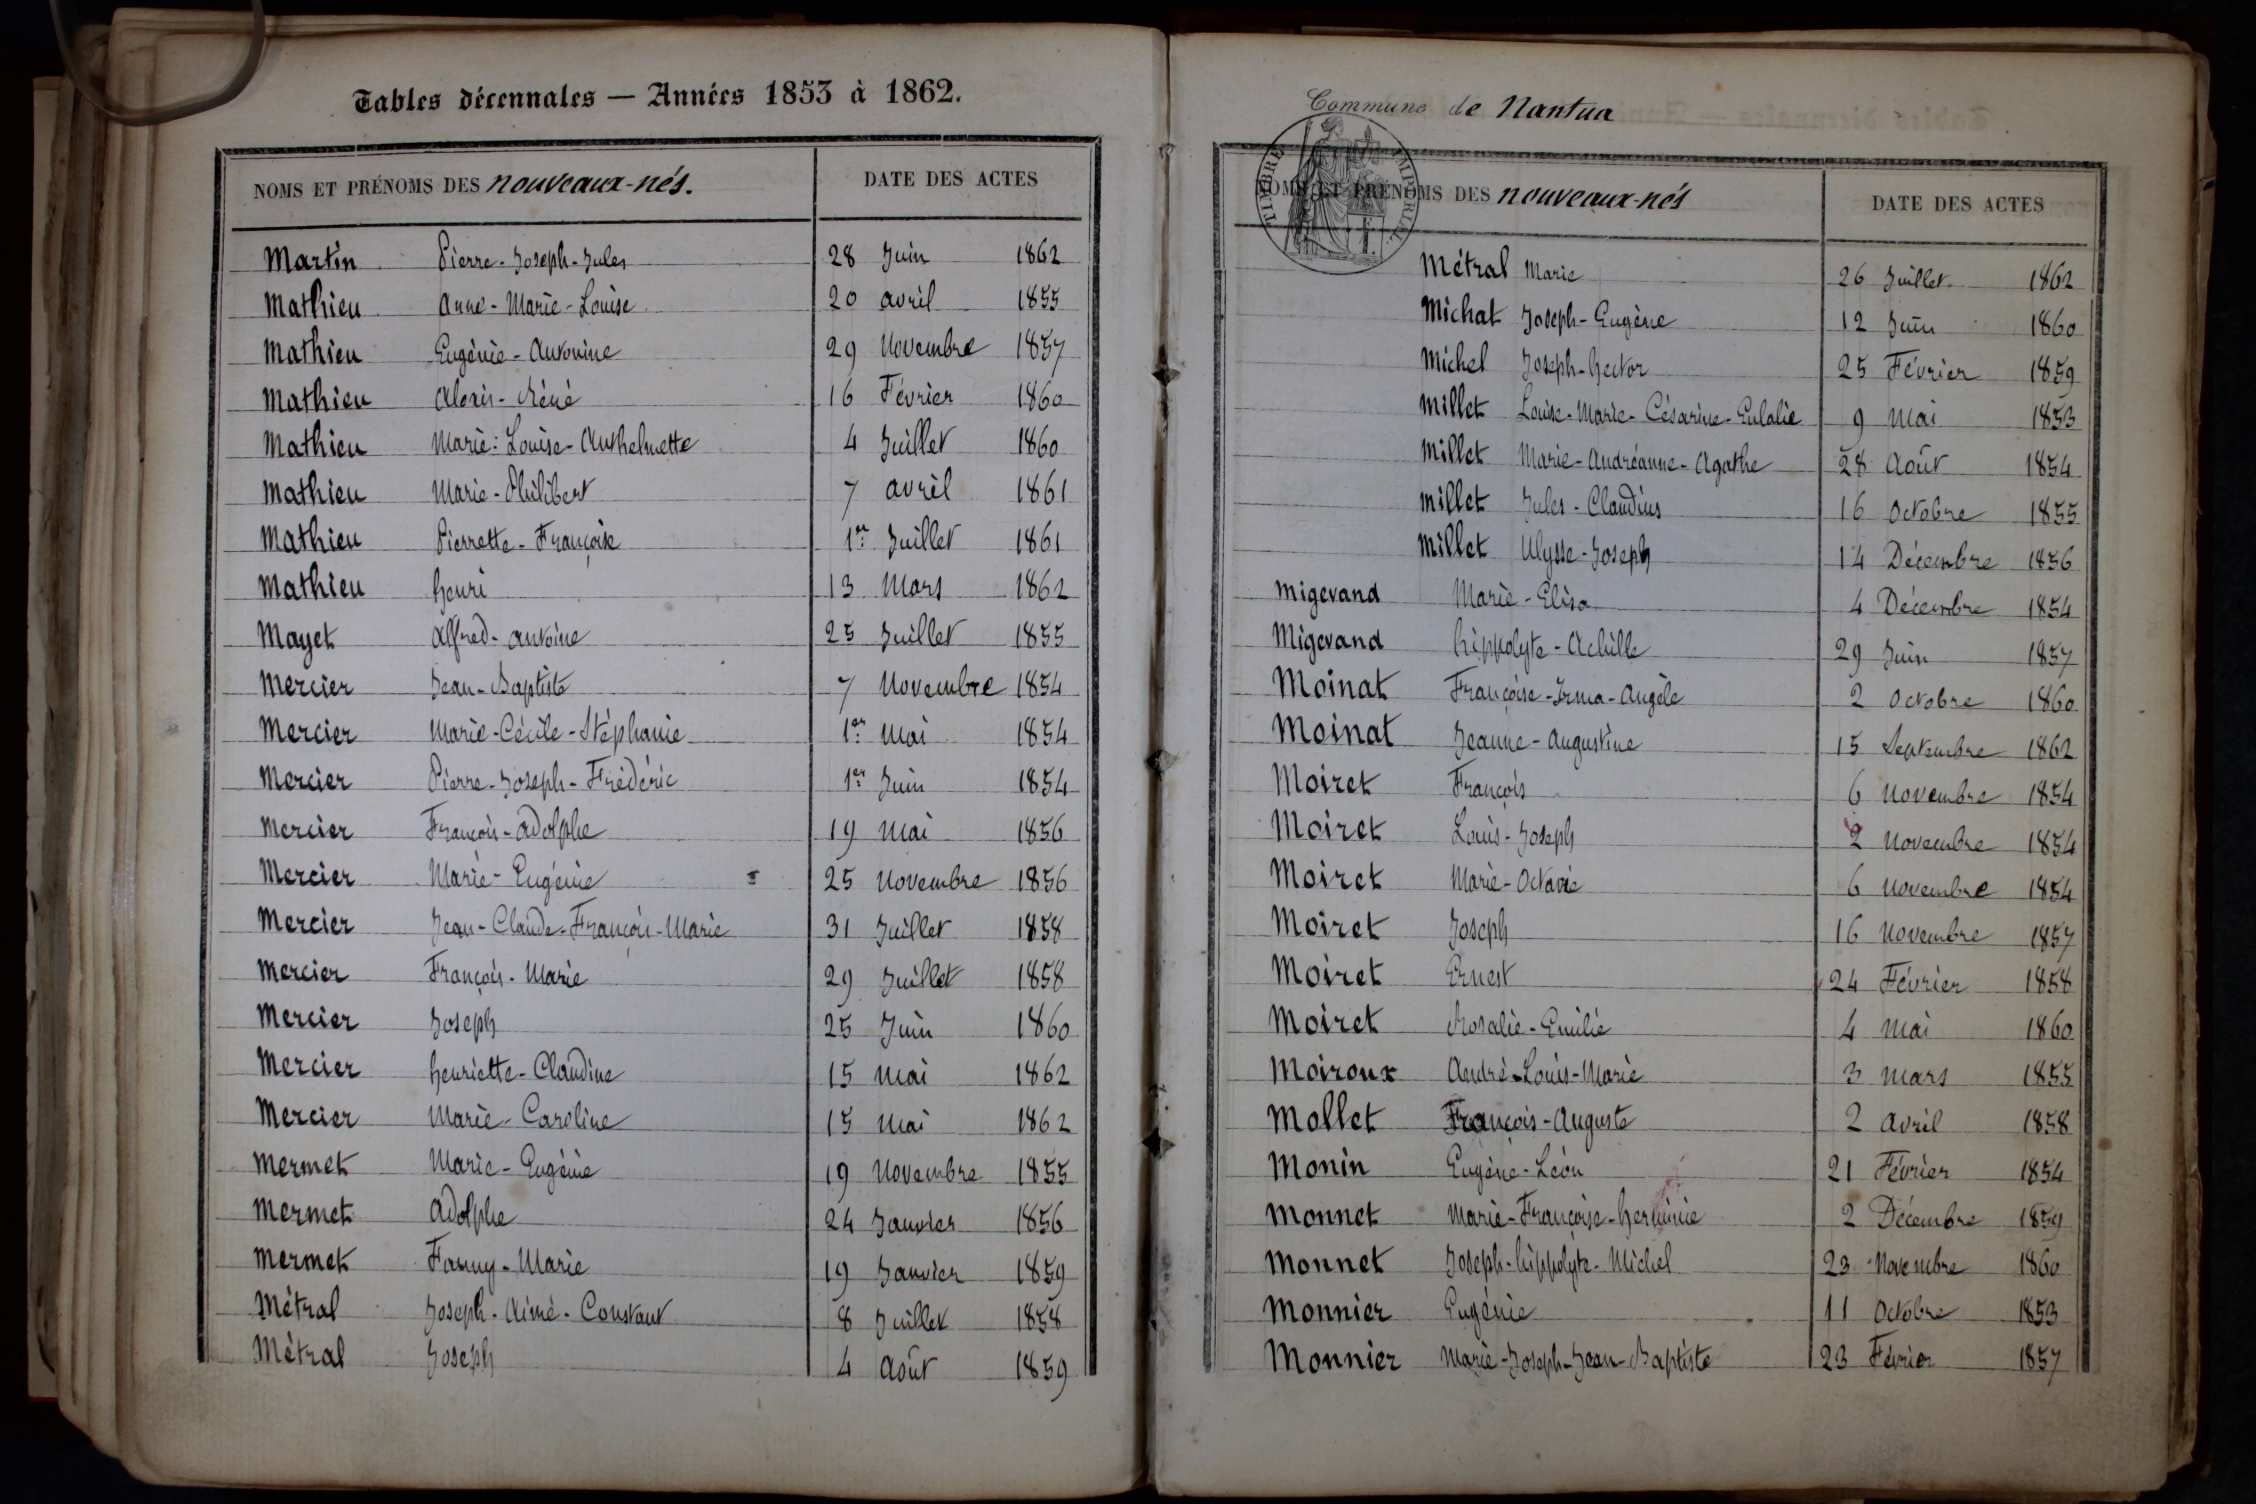 Tables décennales — Années 1853 à 1862.
NOMS ET PRÉNOMS DES nouveaux-nés. DATE DES ACTES
Martin Pierre-Joseph-Jules 28 Juin 1862
Mathieu Anne-Marie-Louise 20 avril 1855
Mathieu Eugénie-Antonine 29 Novembre 1857
Mathieu Alexis-Réné 16 Février 1860
Mathieu Marie-Louise-Anthelmette 4 Juillet 1860
Mathieu Marie-Philibert 7 avril 1861
Mathieu Pierrette-Françoise 1er Juillet 1861
Mathieu henri 13 Mars 1862
Mayet Alfred-antoine 25 Juillet 1855
Mercier Jean-Baptiste 7 Novembre 1854
Mercier Marie-Cécile-Stéphanie 1er Mai 1854
Mercier Pierre-Joseph-Frédéric 1er Juin 1854
Mercier François-adolphe 19 Mai 1856
Mercier Marie-Eugénie 25 Novembre 1856
Mercier Jean-Claude-François-Marie 31 Juillet 1858
Mercier François-Marie 29 Juillet 1858
Mercier Joseph 25 Juin 1860
Mercier henriette-Claudine 15 Mai 1862
Mercier Marie-Caroline 15 Mai 1862
Mermet Marie-Eugénie 19 Novembre 1855
Mermet adolphe 24 Janvier 1856
Mermet Fanny-Marie 19 Janvier 1859
Métral Joseph-Aimé-Constant 8 Juillet 1858
Métral Joseph 4 Août 1859
Commune de Nantua
TIMBRE IMPÉRIAL
NOMS ET PRÉNOMS DES nouveaux-nés DATE DES ACTES
Métral Marie 26 Juillet 1862
Michat Joseph-Eugène 12 Juin 1860
Michel Joseph-hector 25 Février 1859
Millet Louise-Marie-Césarine-Eulalie 9 Mai 1853
Millet Marie-Andréanne-Agathe 28 Août 1854
Millet Jules-Claudius 16 Octobre 1855
Millet Ulysse-Joseph 14 Décembre 1856
Migevand Marie-Elisa 4 Décembre 1854
Migevand hippolyte-Achille 29 Juin 1857
Moinat Françoise-Irma-Angèle 2 Octobre 1860
Moinat Jeanne-Augustine 15 Septembre 1862
Moiret François 6 Novembre 1854
Moiret Louis-Joseph 2 Novembre 1854
Moiret Marie-Octavie 6 Novembre 1854
Moiret Joseph 16 Novembre 1857
Moiret Ernest 24 Février 1858
Moiret Rosalie-Emilie 4 Mai 1860
Moiroux André-Louis-Marie 3 Mars 1855
Mollet François-Auguste 2 Avril 1858
Monin Eugène-Léon 21 Février 1854
Monnet Marie-Françoise-herminie 2 Décembre 1859
Monnet Joseph-hippolyte-Michel 23 Novembre 1860
Monnier Eugénie 11 Octobre 1853
Monnier Marie-Joseph-Jean-Baptiste 23 Février 1857